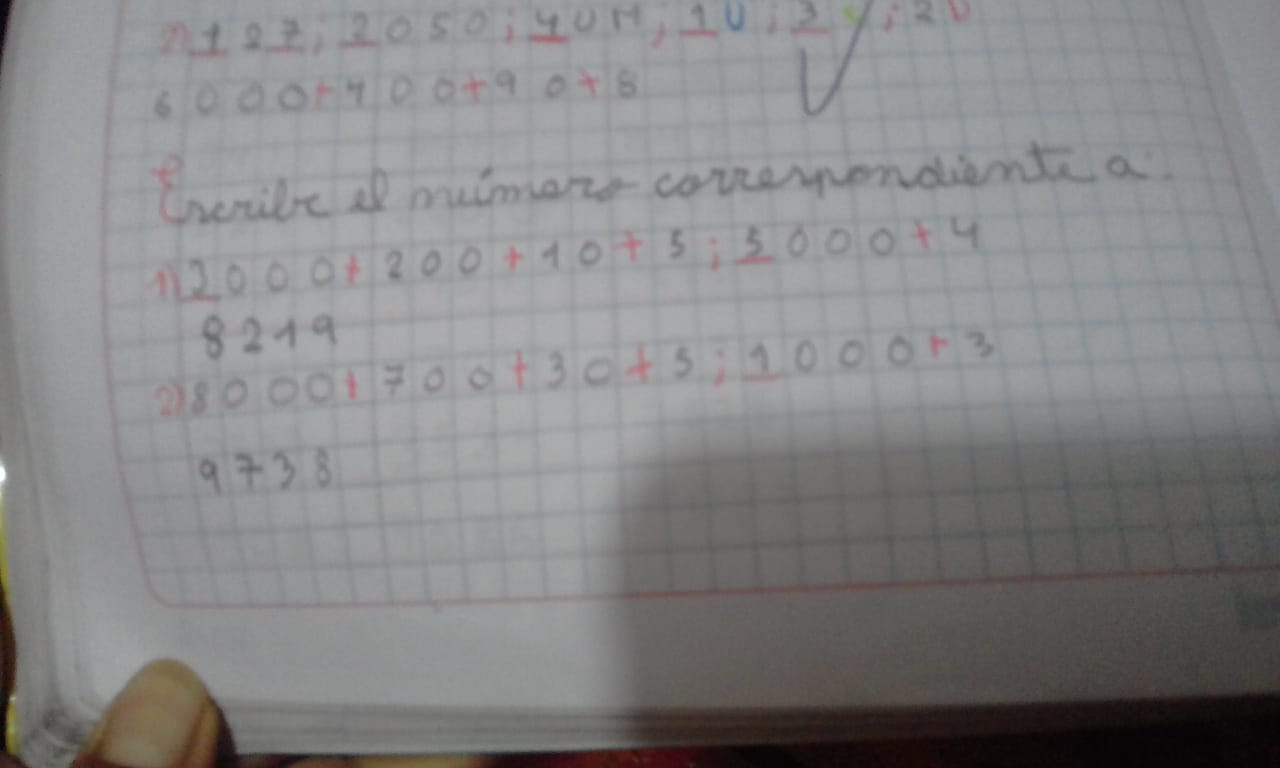 2) 127; 2050; 4UM; 1U; 3 ; 2D
6000+400+90+8
Escribe el número correspondiente a:
1) 2000+200+10+5; 5000+4
8219
2) 8000+700+30+5; 1000+3
9738